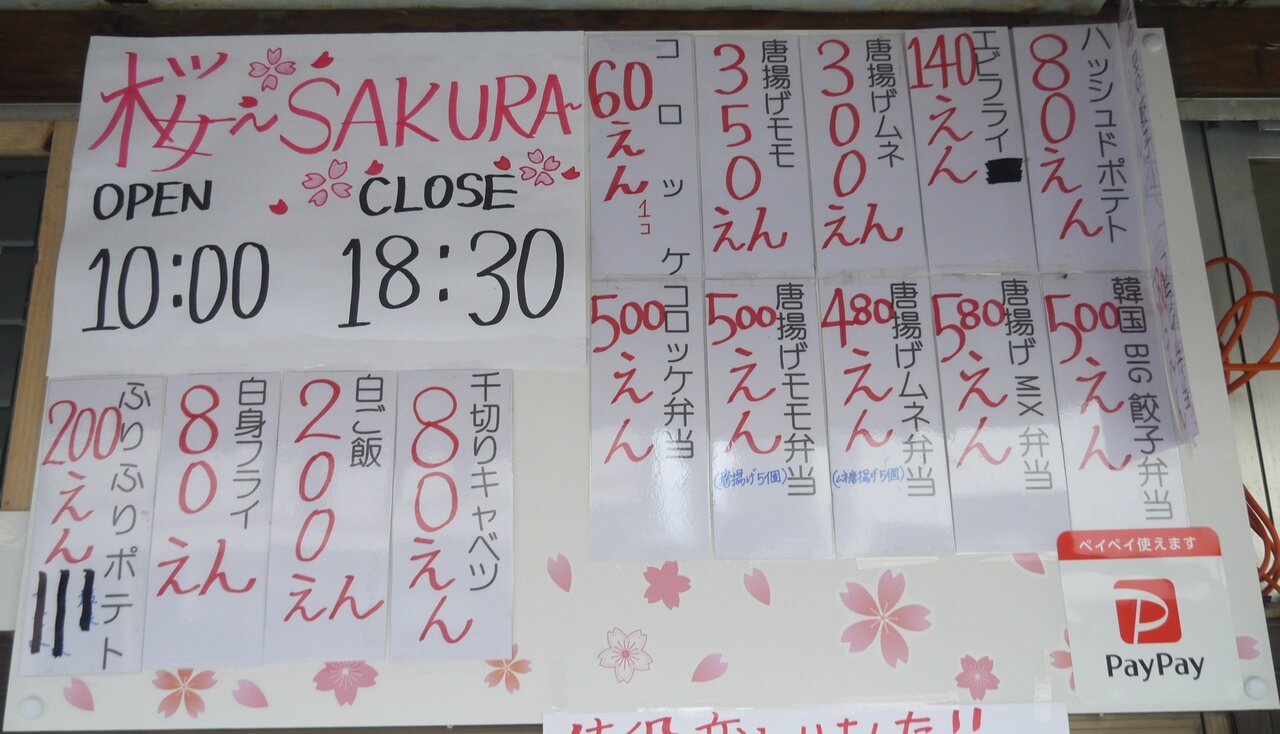 桜ぇSAKURA~
OPEN CLOSE
10:00 18:30
ハッシュドポテト
80えん
エビフライ
140えん
唐揚げムネ
300えん
唐揚げモモ
350えん
コロッケ
60えん
1コ
韓国BIG餃子弁当
500えん
唐揚げMIX弁当
580えん
唐揚げムネ弁当
480えん
(ムネ唐揚げ5個)
唐揚げモモ弁当
500えん
(唐揚げ5個)
コロッケ弁当
500えん
千切りキャベツ
80えん
白ご飯
200えん
白身フライ
80えん
ふりふりポテト
200えん
ペイペイ使えます
PayPay